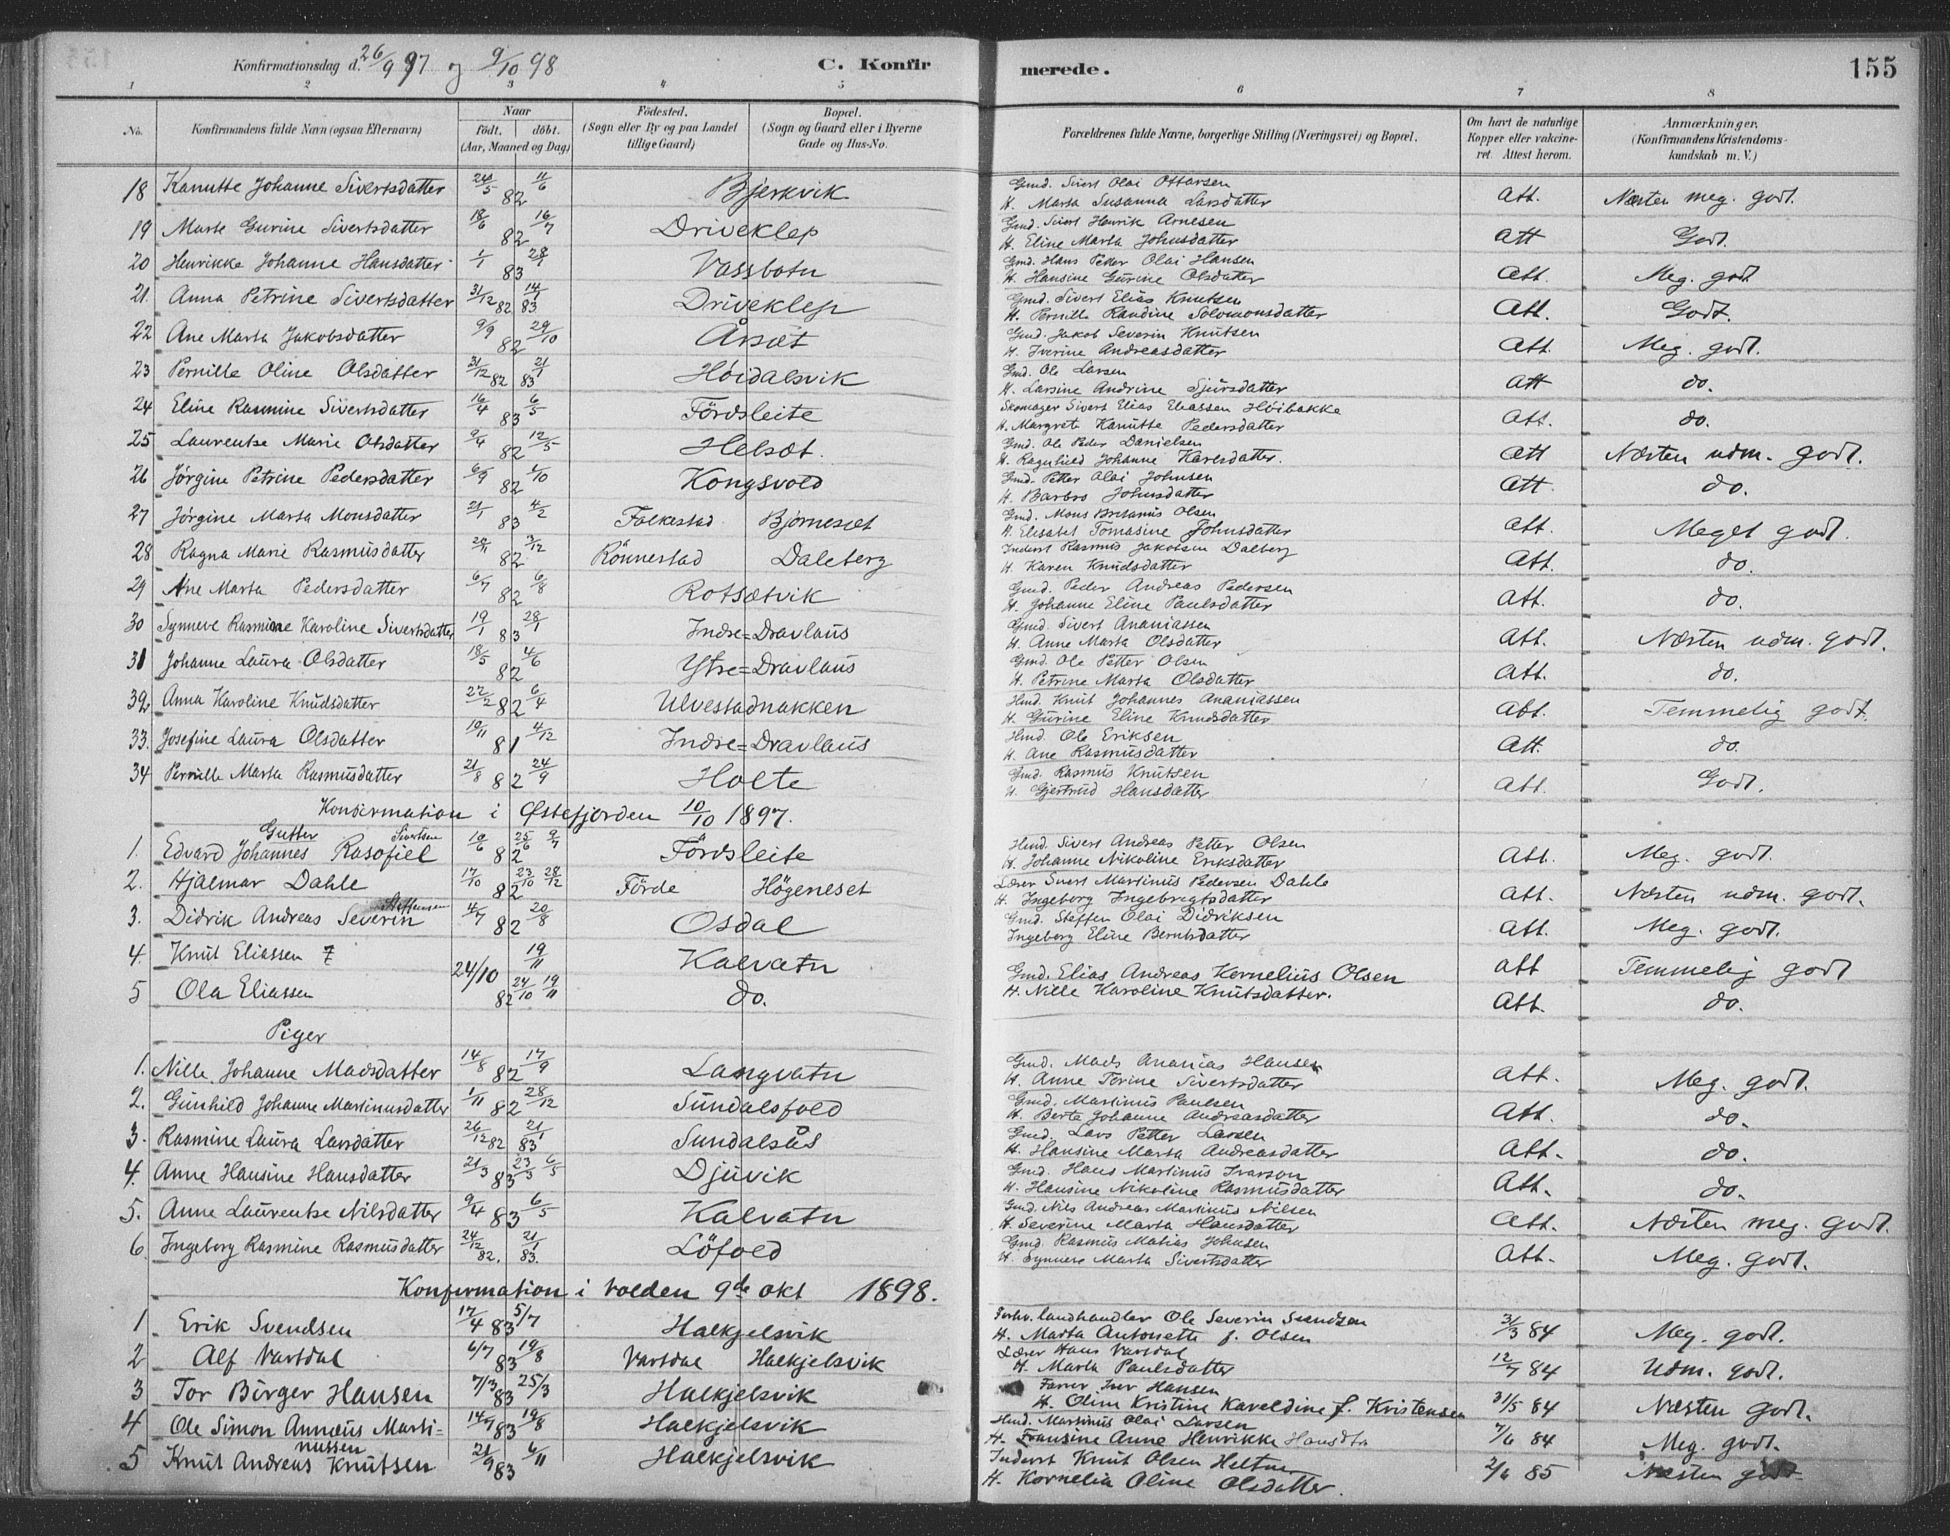 Konfirmationsdag d. 26/9 97 og 9/10 98 C. Konfirmerede. 155
1 2 3 4 5 6 7 8
No. Konfirmandens fulde Navn (ogsaa Efternavn) Naar födt. döbt. (Aar, Maaned og Dag) Födested. (Sogn eller By og paa Landet tillige Gaard) Bopæl. (Sogn og Gaard eller i Byerne Gade og Hus-No. Forældrenes fulde Navne, borgerlige Stilling (Næringsvei) og Bopæl. Om havt de naturlige Kopper eller vakcineret. Attest herom. Anmærkninger. (Konfirmandens Kristendomskundskab m. V.)
18 Kanutte Johanne Sivertsdatter 24/5 82 11/6 Bjerkvik Gmd. Sivert Olai Ottarsen H. Marta Susanna Larsdatter Att. Næsten meg. godt.
19 Marte Gurine Sivertsdatter 18/6 82 16/7 Driveklep Gmd. Sivert Henrik Arnesen H. Eline Marta Johnsdatter Att Godt.
20 Henrikke Johanne Hansdatter 1/1 83 28/1 Vassbotn Gmd. Hans Petter Olai Hansen H. Hansine Gurine Olsdatter Att. Meg. godt
21. Anna Petrine Sivertsdatter 31/12 82 14/1 83 Driveklep Gmd. Sivert Elias Knutsen H. Pernille Randine Solomonsdatter Att. Godt.
22 Ane Marta Jakobsdatter 9/9 82 29/10 Årsæt Gmd. Jakob Severin Knutsen H. Iverine Andreasdatter Att. Meg. godt.
23 Pernille Oline Olsdatter 31/12 82 21/1 83 Höidalsvik Gmd. Ole Larsen H. Larsine Andrine Sjursdatter Att do.
24 Eline Rasmine Sivertsdatter 16/4 83 6/5 Fördsleite Skomager Sivert Elias Eliassen Höibakke H. Margrete Kanutte Pedersdatter Att. do.
25 Laurentse Marie Olsdatter 9/4 82 12/5 Helsæt. Gmd. Ole Peter Danielsen H. Ragnhild Johanne Karlsdatter. Att Næsten udm. godt.
26 Jörgine Petrine Pedersdatter 6/9 82 1/10 Kongsvold Gmd. Petter Olai Johnsen H. Barbro Johnsdatter Att. do.
27 Jörgine Marta Monsdatter 21/1 83 4/2 Folkestad Björneset Gmd. Mons Bretanus Olsen H. Elisabet Tomasine Johnsdatter Att. Meget godt.
28 Ragna Marie Rasmusdatter 20/11 82 3/12 Rönnestad Daleberg Inderst Rasmus Jakobsen Dalberg H. Karen Knudsdatter Att. do.
29 Ane Marta Pedersdatter 6/7 82 6/8 Rotsætvik Gmd. Peder Andreas Pedersen H. Johanne Eline Paulsdatter Att. do.
30 Synneve Rasmine Karoline Sivertsdatter 19/1 83 28/1 Indre=Dravlaus Gmd. Sivert Ananiassen H. Anne Marta Olsdatter Att. Næsten udm. godt.
31 Johanne Laura Olsdatter 18/5 82 4/6 Ytre=Dravlaus Gmd. Ole Petter Olsen H. Petrine Marta Olsdatter Att. do.
32 Anna Karoline Knudsdatter 22/2 82 6/4 Ulvestadnakken Hmd. Knut Johannes Ananiassen H. Gurine Eline Knudsdatter Att. Temmelig godt.
33. Josefine Laura Olsdatter 10/11 81 4/12 Indre=Dravlaus Hmd. Ole Eriksen H. Ane Rasmusdatter Att. do.
34 Pernille Marta Rasmusdatter 21/8 82 24/9 Holte Gmd. Rasmus Knutsen H. Gjertrud Hansdatter Att. Godt.
Konfirmation i Østefjorden 10/10 1897.
Gutter
1. Edvard Johannes Rasofiel Sivertsen 10/6 82 25/6 9/7 Fördsleite Hmd. Sivert Andreas Petter Olsen H. Johanne Nikoline Eriksdatter Att. Meg. godt.
2. Hjalmar Dahle 17/10 82 23/10 28/12 Förde Högeneset Lærer Sivert Martinus Pedersen Dahle H. Ingeborg Ingebrigtsdatter Att. Næsten udm. godt.
3. Didrik Andreas Severin Steffensen 4/7 82 20/8 Osdal Gmd. Steffen Olai Didriksen Ingeborg Eline Berntsdatter Att. Meg. godt.
4. Knut Eliassen 24/10 19/11 Kalvatn Gmd. Elias Andreas Kornelius Olsen Att Temmelig godt
5 Ola Eliassen 82 24/10 19/11 do. H. Nille Karoline Knutsdatter. Att. do.
Piger
1. Nille Johanne Madsdatter 14/8 82 17/9 Langvatn Gmd. Mads Ananias Hansen H. Anne Terine Sivertsdatter Att. Meg. godt.
2. Gunhild Johanne Martinusdatter 1/11 82 28/12 Sundalsfold Gmd. Martinus Paulsen H. Berte Johanne Andreasdatter Att. do.
3. Rasmine Laura Larsdatter 26/12 82 21/1 83 Sundalsås Gmd. Lars Petter Larsen H. Hansine Marta Andreasdatter Att. do.
4. Anne Hansine Hansdatter 21/3 83 23/3 6/5 Djuvik Gmd. Hans Martinus Ivarson H. Hansine Nikoline Rasmusdatter Att. do.
5. Anne Laurentse Nilsdatter 9/4 83 6/5 Kalvatn Gmd. Nils Andreas Martinus Nilsen H. Severine Marta Hansdatter Att. Næsten meg. godt.
6 Ingeborg Rasmine Rasmusdatter 24/12 82. 21/1 83. Löfold Gmd. Rasmus Matias Johnsen H. Synneve Marta Sivertsdatter Att. Meg. godt.
Konfirmation i Volden 9de Okt 1898.
1 Erik Svendsen 17/4 83 5/7 Halkjelsvik Forhv. landhandler Ole Severin Svendsen H. Marta Antonette f. Olsen 3/3 84 Meg. godt.
2 Alf Vartdal 6/7 83 19/8 Vartdal Halkjelsvik Lærer Hans Vartdal H. Marta Paulsdatter 12/7 84 Udm. godt.
3 Tor Birger Hansen 7/3 83 25/3 Halkjelsvik Farver Iver Hansen H. Olina Kristine Karoldine f. Kristensen 31/5 84 Næsten godt.
4 Ole Simon Annæus Martinussen 14/7 83 19/8 Halkjelsvik Hmd. Martinus Olai Larsen H. Fransine Anne Henrikke Hansdtr 7/6 84 Meg. godt.
5 Knut Andreas Knutsen 21/9 83 4/11 Halkjelsvik Inderst Knut Olsen Heltne H. Kornelia Oline Olsdatter. 2/6 85 Næsten godt